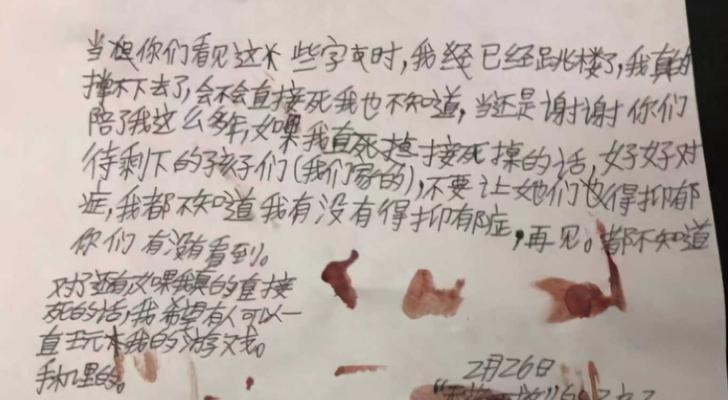 当你们看见这些字时,我经已经跳楼了,我真的
撑不下去了,会不会直接死我也不知道,当还是谢谢你们
陪了我这么多年,如果我直死接死掉的话,好好对
待剩下的孩子们(我们家的),不要让她们也得抑郁
症,我都不知道我有没有得抑郁症,再见。都不知道
你们有没有看到。
对了还有如果我真的直接
死的话,我希望有人可以一
直玩我的游戏。
手机里的。
2月26日